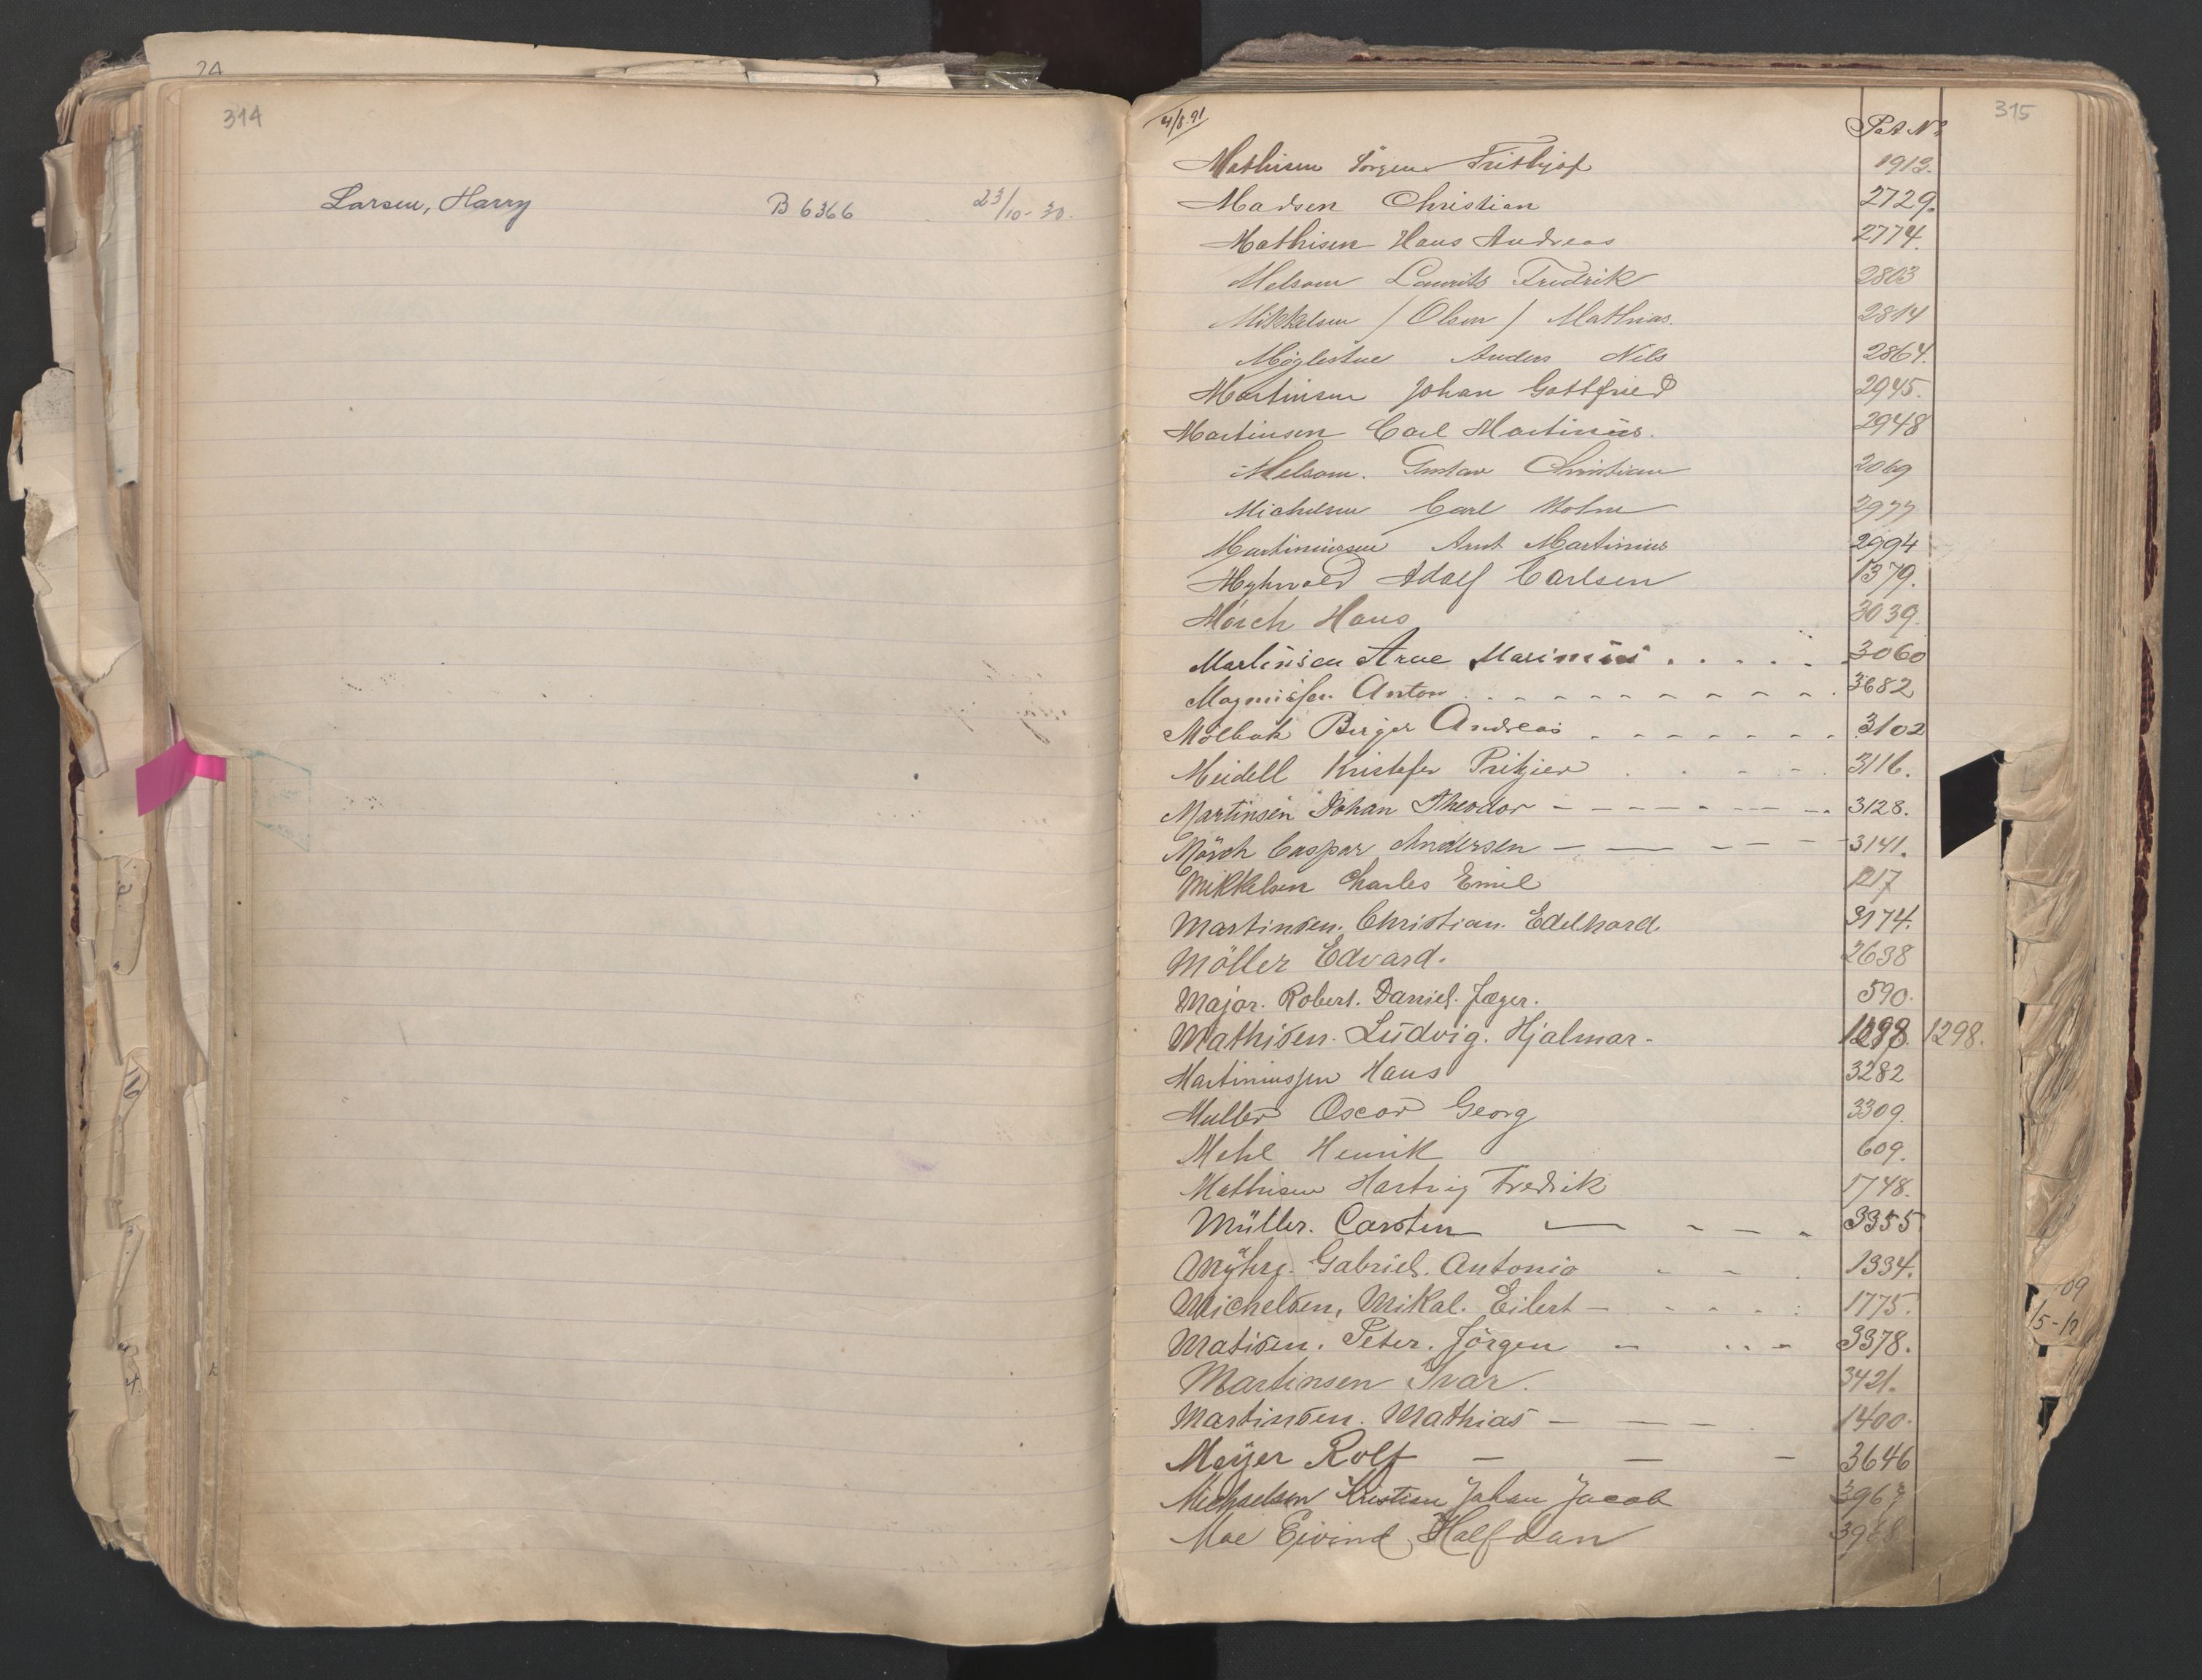 314
Larsen, Harry B 6366 23/10-30.
4/8.91
315
Pat Nº
Mathisen Jörgen Frithjof 1913.
Madsen Christian 2729.
Mathisen Hans Andreas 2774.
Melsom Laurits Fredrik 2803
Mikkelsen / Olsen / Mathias. 2814
Möglestue Anders Nils 2864.
Martinsen Johan Gottfried 2945.
Martinsen Carl Martinius. 2948
Melsom. Gustav Christian 2069
Michelsen Carl Holm 2977
Martiniussen Arnt Martinius 2994
Myhrvold Adolf Carlsen 1379.
Mörch Hans 3039.
Martinsen Arne Marinius 3060
Magnussen Anton 3682
Mölbak Birger Andreas 3102
Meidell Kristofer Pritzier 3116.
Martinsen Johan Theodor 3128.
Mörch Caspar Andersen 3141.
Mikkelsen Charles Emil 1217
Martinsen. Christian. Edelhard 3174.
Möller Edvard. 2638
Major. Robert. Daniel. Jæger. 590.
Mathisen. Ludvig. Hjalmar. 1298. 1298.
Martiniussen Hans 3282
Muller Oscar Georg 3309.
Mehl Henrik 609.
Mathisen Hartvig Fredrik 1748.
Müller. Carsten 3355
Myhre. Gabriel. Antonio 1334.
Michelsen, Mikal. Eilert 1775.
Matisen. Peter. Jörgen 3378.
Martinsen Ivar. 3421.
Martinsen. Mathias 1400.
Meyer Rolf 3646
Michaelsen Kristian Johan Jacob
Moe Eivind Halfdan